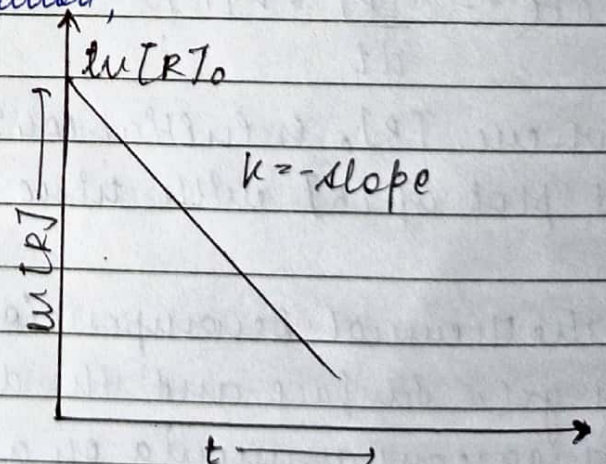 ln [R]₀
K = -slope
ln [R]
t